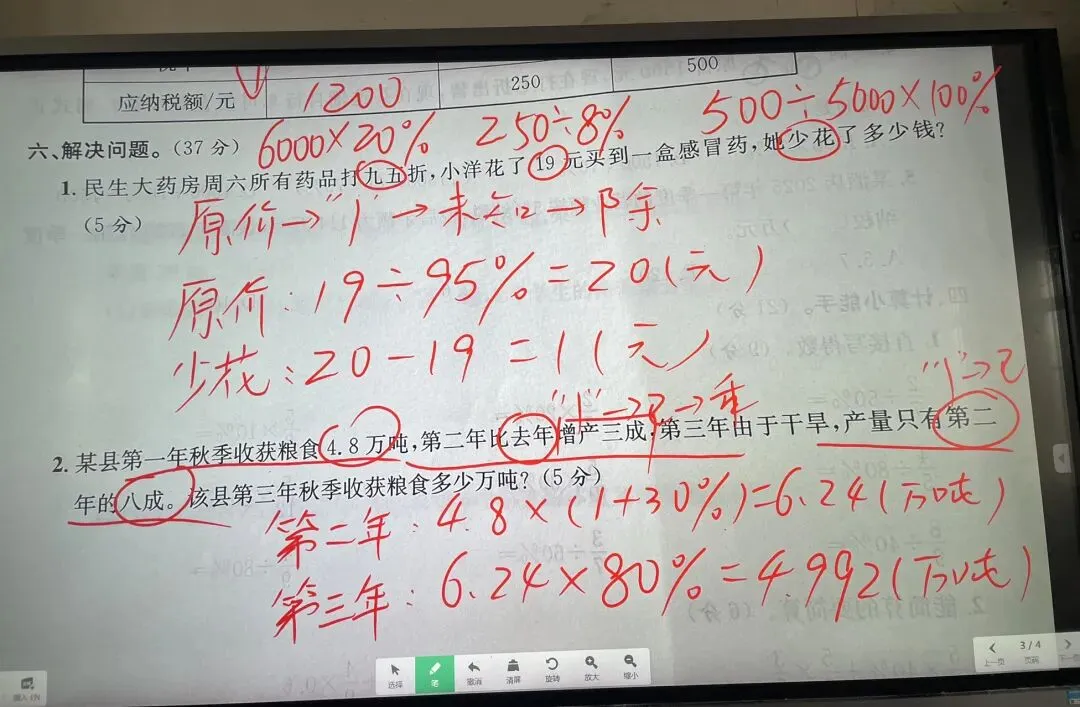 应纳税额/元 1200 250 500
6000×20% 250÷8% 500÷5000×100%
六、解决问题。(37 分)
1. 民生大药房周六所有药品打九五折,小洋花了 19 元买到一盒感冒药,她少花了多少钱?
(5 分)
原价→"1"→未知→除
原价:19÷95%=20(元)
少花:20-19=1(元)
"1"→已→乘 "1"→已
2. 某县第一年秋季收获粮食 4.8 万吨,第二年比去年增产三成,第三年由于干旱,产量只有第二
年的八成。该县第三年秋季收获粮食多少万吨?(5 分)
第二年:4.8×(1+30%)=6.24(万吨)
第三年:6.24×80%=4.992(万吨)
选择 笔 撤消 清屏 旋转 放大 缩小
上一页 3/4 页码 下一页